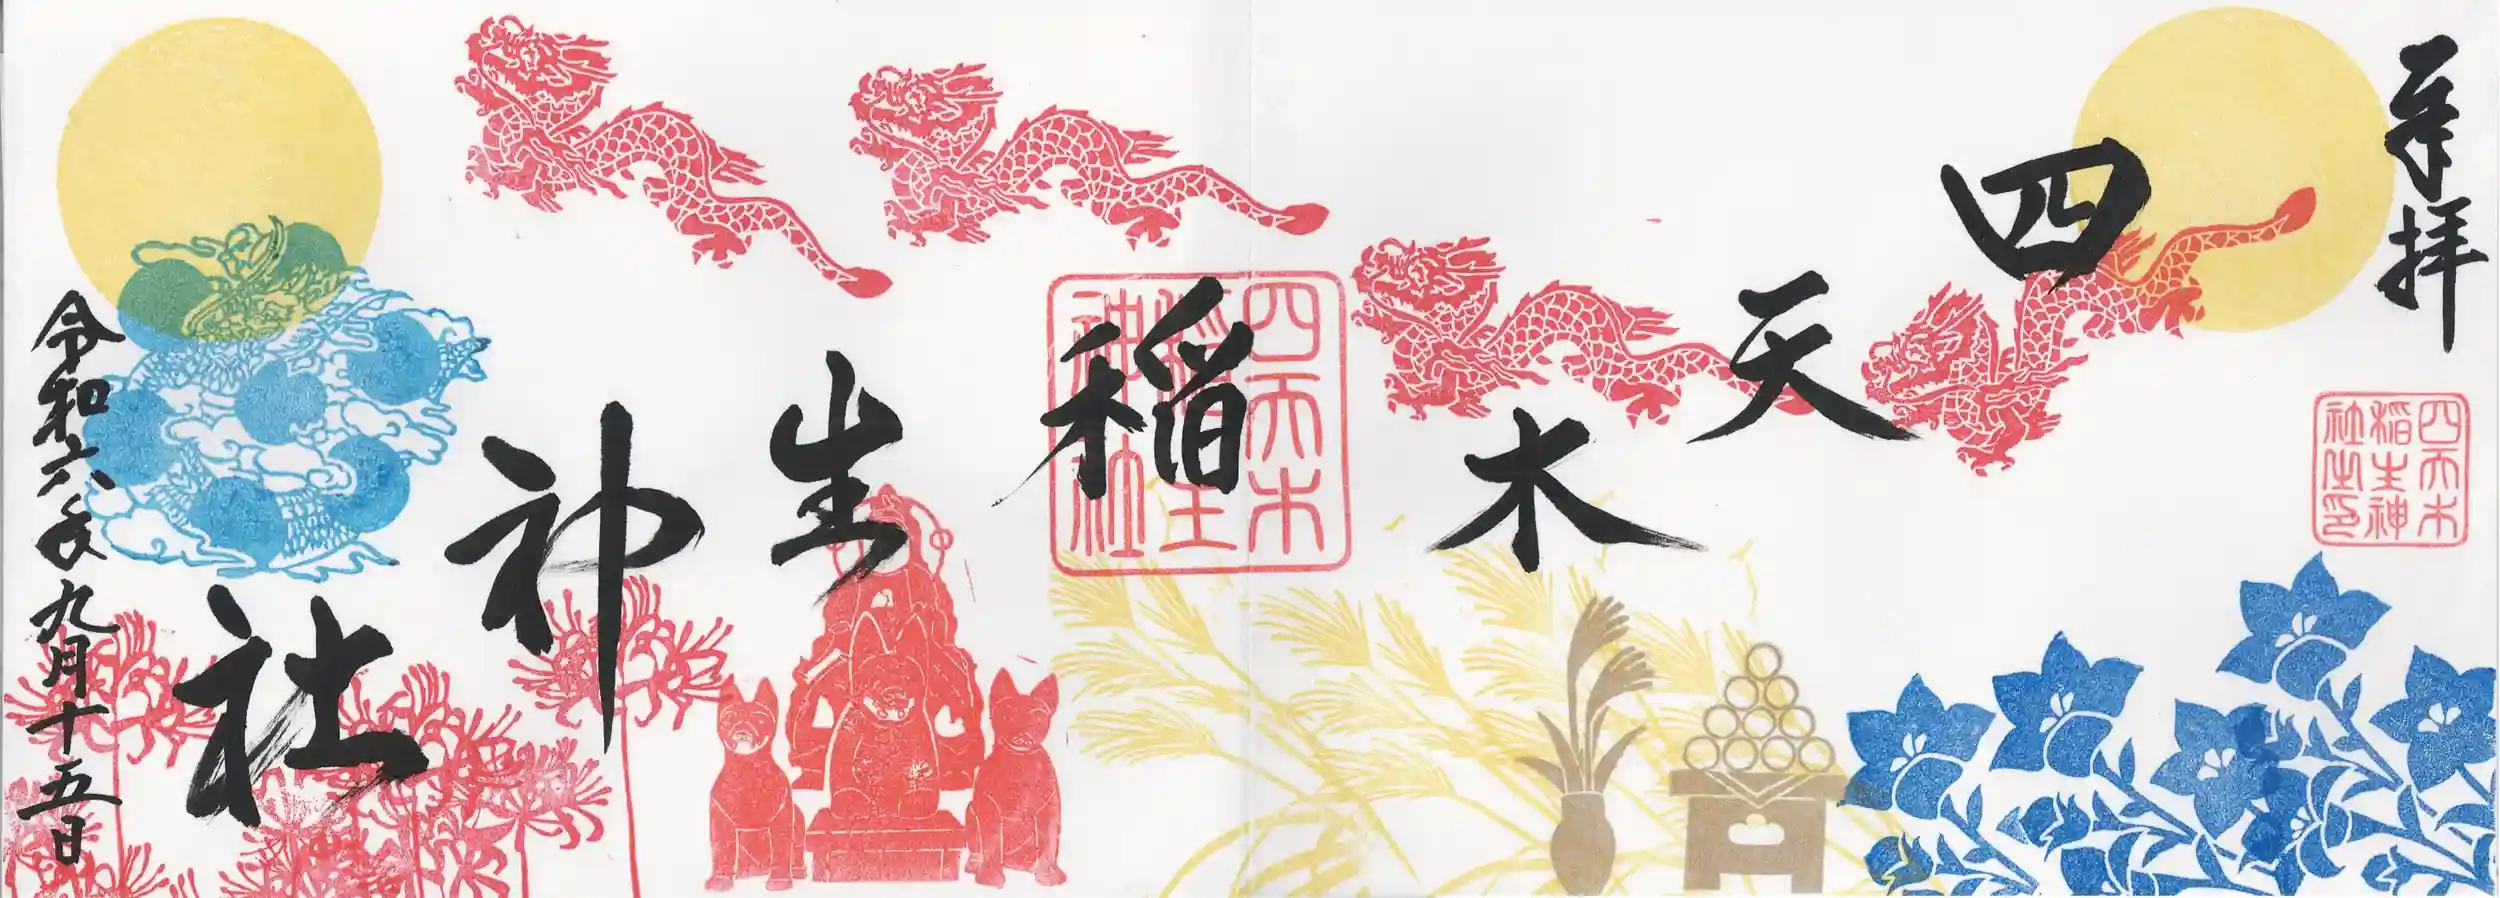 奉拝
四天木稲生神社之印
四天木稲生神社
四天木稲生神社
令和六年九月十五日